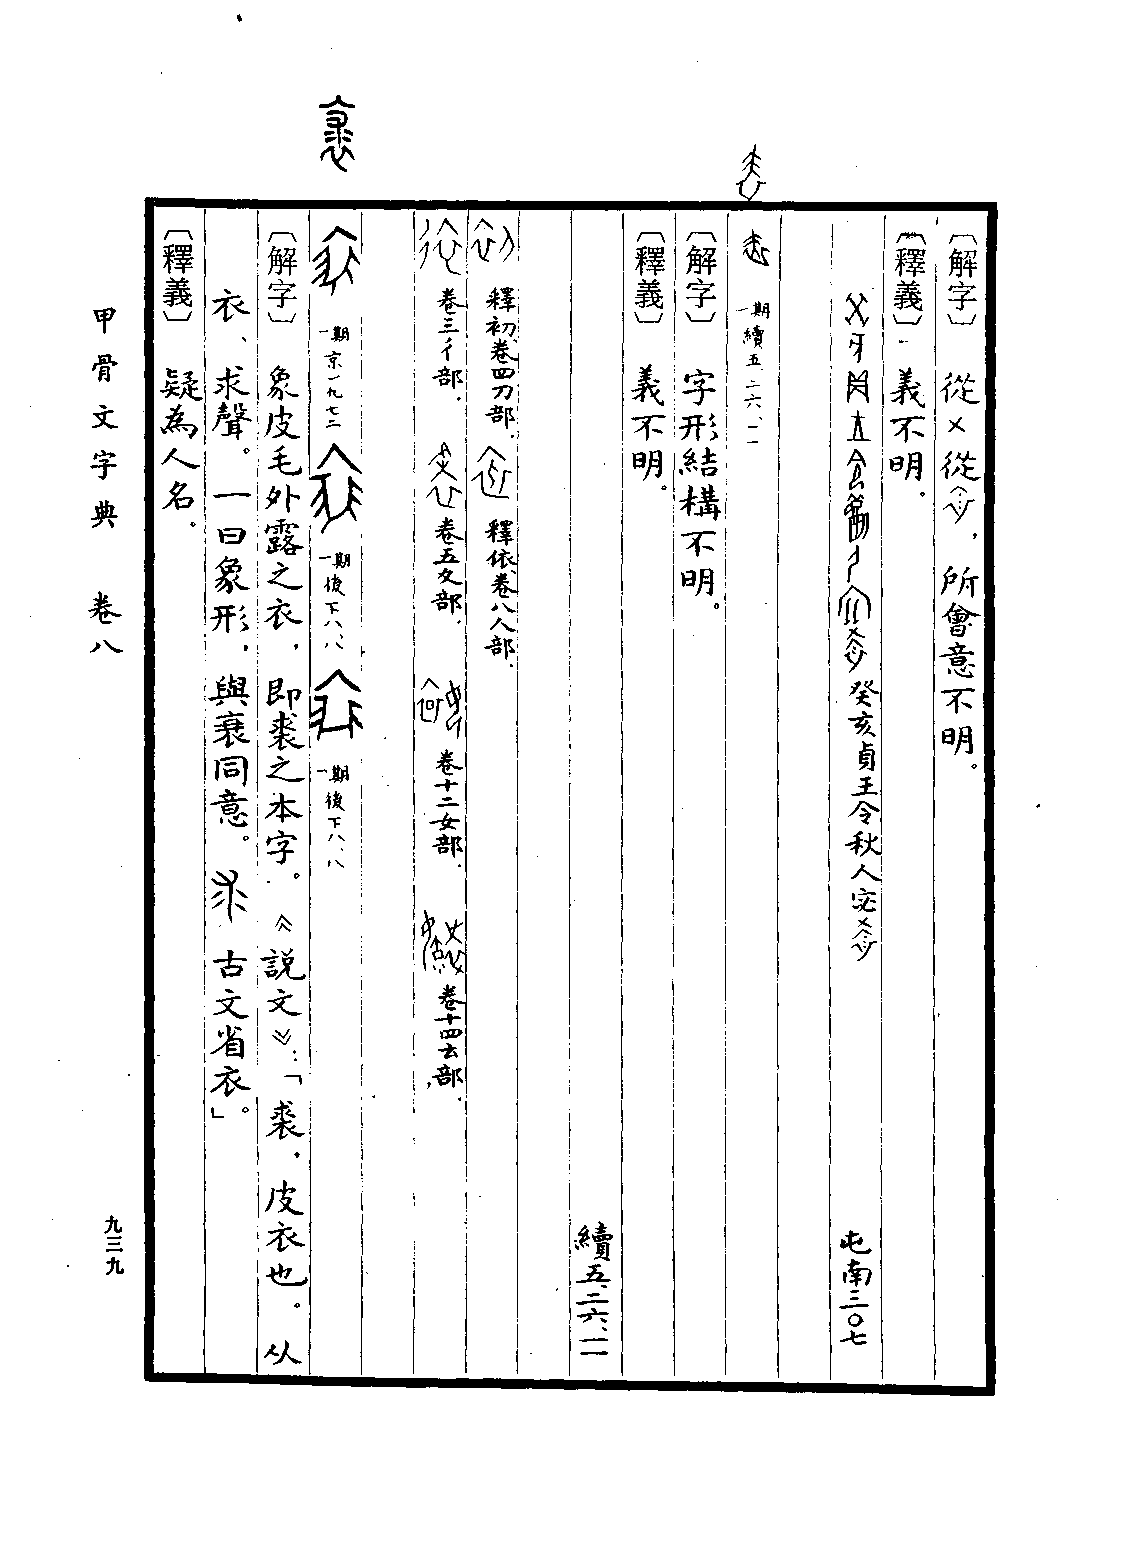 〔解字〕 從㐅從,所會意不明。
〔釋義〕 義不明。
癸亥貞王令秋人 屯南三〇七
一期 續五、二六、一一
〔解字〕 字形結構不明。
〔釋義〕 義不明。
續五、二六、一一
釋初、卷四刀部. 釋依、卷八人部.
卷三彳部. 卷五夊部. 卷十二女部. 卷十四𠫓部.
一期 京一九七二 一期 後下八、八 一期 後下八、八
〔解字〕 象皮毛外露之衣,即裘之本字。《説文》:「裘,皮衣也。从
衣、求聲。一曰象形,與衰同意。 古文省衣」。
〔釋義〕 疑為人名.
甲骨文字典 卷八
九三九